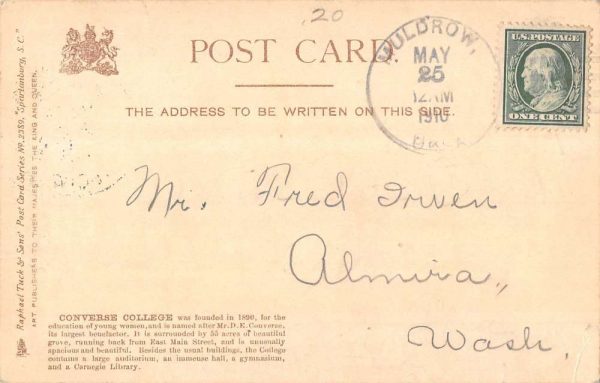 .20
POST CARD.
MULDROW,
MAY
25
12AM
1910
OKLA
U.S. POSTAGE
ONE CENT
THE ADDRESS TO BE WRITTEN ON THIS SIDE.
Mr. Fred Irven
Almira,
Wash.
CONVERSE COLLEGE was founded in 1890, for the
education of young women, and is named after Mr. D. E. Converse,
its largest benefactor. It is surrounded by 55 acres of beautiful
grove, running back from East Main Street, and is unusually
spacious and beautiful. Besides the usual buildings, the College
contains a large auditorium, an immense hall, a gymnasium,
and a Carnegie Library.
Raphael Tuck & Sons' Post Card Series No. 2389, "Spartanburg, S.C."
ART PUBLISHERS TO THEIR MAJESTIES THE KING AND QUEEN.